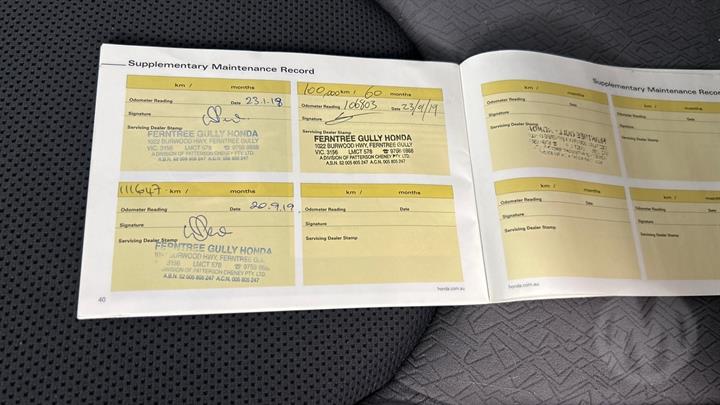 Supplementary Maintenance Record
km / months
Odometer Reading Date 23.1.18
Signature
Servicing Dealer Stamp
FERNTREE GULLY HONDA
1022 BURWOOD HWY, FERNTREE GULLY
VIC. 3156 LMCT 578
A DIVISION OF PATTERSON CHENEY PTY. LTD.
A.B.N. 52 005 805 247 A.C.N. 005 805 247
100,000 km / 60 months
Odometer Reading 106803 Date 23/4/19
Signature
Servicing Dealer Stamp
FERNTREE GULLY HONDA
1022 BURWOOD HWY, FERNTREE GULLY
VIC. 3156 LMCT 578
A DIVISION OF PATTERSON CHENEY PTY. LTD.
A.B.N. 52 005 805 247 A.C.N. 005 805 247
111647 km / months
Odometer Reading Date 20.9.19
Signature
Servicing Dealer Stamp
FERNTREE GULLY HONDA
BURWOOD HWY, FERNTREE GULLY
3156 LMCT 578
DIVISION OF PATTERSON CHENEY PTY. LTD.
A.B.N. 52 005 805 247 A.C.N. 005 805 247
km / months
Odometer Reading Date
Signature
Servicing Dealer Stamp
40
honda.com.au
Supplementary Maintenance Recor
km / months
Odometer Reading Date
Signature
Servicing Dealer Stamp
km /
Odometer Reading
Signature
Servicing Dealer Stamp
km / months
Odometer Reading Date
Signature
Servicing Dealer Stamp
km /
Odometer Reading
Signature
Servicing Dealer Stamp
honda.com.au